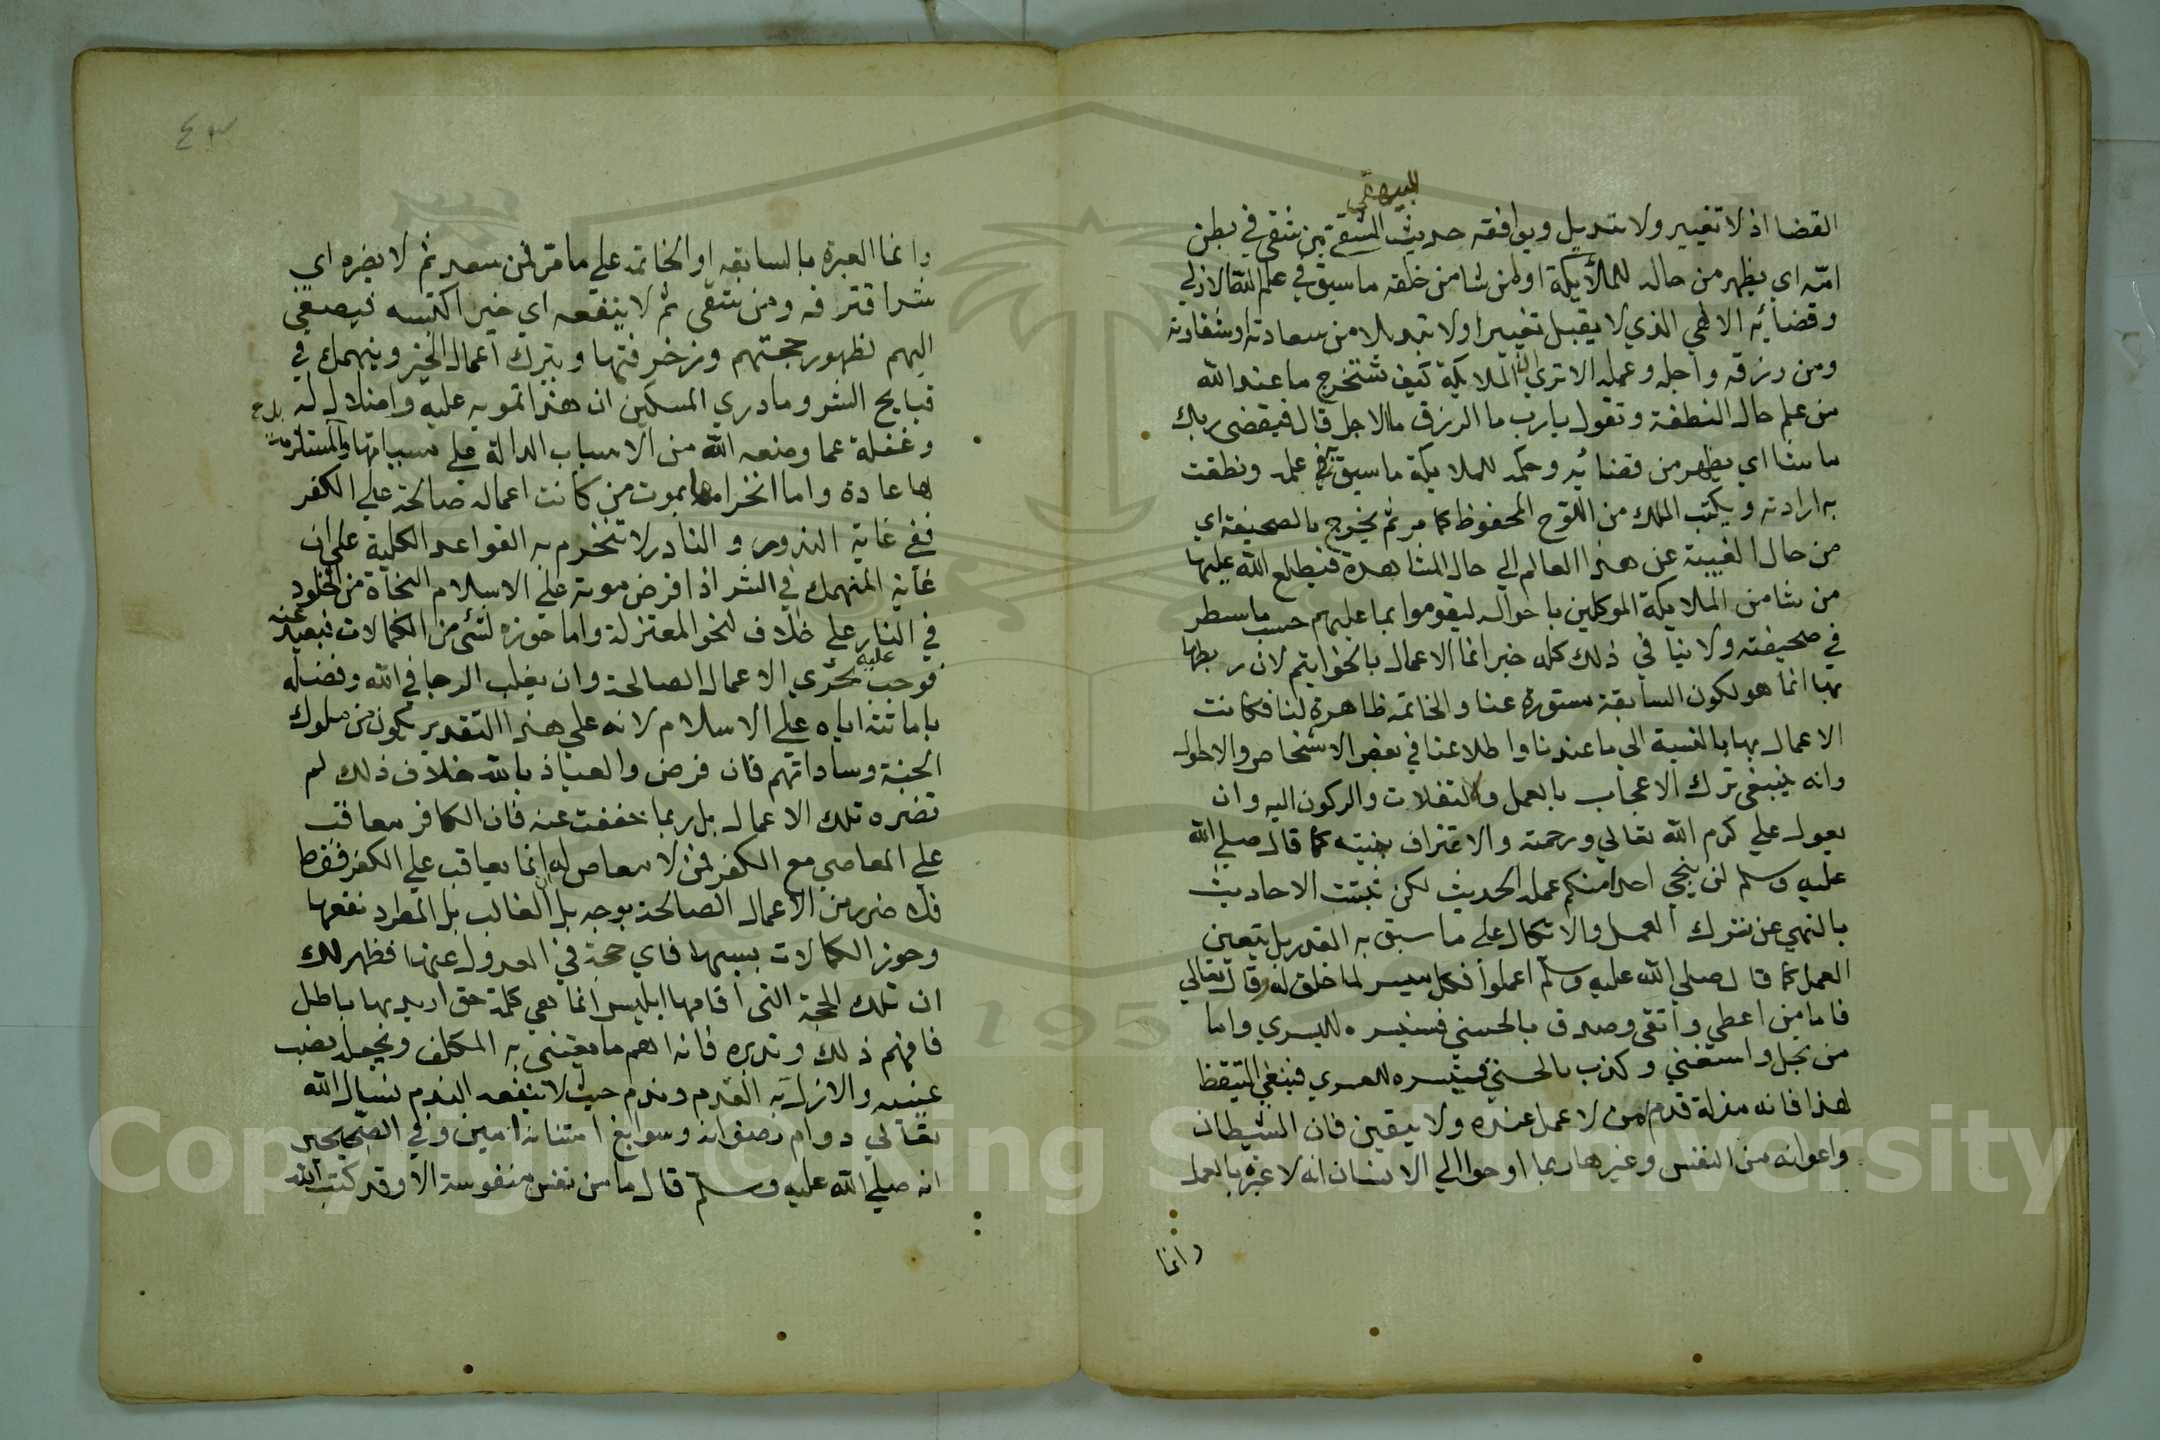 للبيهقي
القضا اذ لا تغيير ولا تبديل ويوافقه حديث الشقي من شقي في بطن
امّه اي يظهر من حاله للملائكة اولمن شا من خلقه ما سبق في علم الله الازلي
وقضائه الالهي الذي لا يقبل تغييرا ولا تبديلا من سعادته او شقاوته
ومن رزقه واجله وعمله الا تري ان الملايكة كيف تستخرج ما عند الله
من علم حال النطفة وتقول يارب ما الرزق ما الاجل قال فيقضى ربك
ما شا اي يظهر من قضائه وحكمه للملايكة ما سبق في علمه ونطقت
به ارادته ويكتب الملك من اللوح المحفوظ كما مر ثم يخرج بالصحيفة اي
من حال الغيبة عن هذا العالم الي حال المشاهدة فيطلع الله عليها
من شا من الملايكة الموكلين باحواله ليقوموا بما عليهم حسب ما سطر
في صحيفته ولا ينافي ذلك كله خبر انما الاعمال بالخواتيم لان ربطها
بها انما هو لكون السابقة مستورة عنا والخاتمة ظاهرة لنا فكانت
الاعمال بها بالنسبة الي ما عندنا واطلاعنا في بعض الاشخاص والاحوال
وانه ينبغى ترك الاعجاب بالعمل والتفلات والركون اليه وان
يعول علي كرم الله تعالي ورحمته والاعتراف بمنته كما قال صلي الله
عليه وسلم لن ينجي احدا منكم عمله الحديث لكن ثبتت الاحاديث
بالنهي عن ترك العمل والاتكال علي ما سبق به القدر بل يتعين
العمل كما قال صلي الله عليه وسلم اعملوا فكل ميسر لما خلق له وقال تعالي
فاما من اعطي واتقى وصدق بالحسني فسنيسره لليسري واما
من بخل واستغني وكذب بالحسني فسنيسره للعسري فينبغي التيقظ
لهذا فانه مزلة قدم من لا عمل عنده ولا يقين فان الشيطان
واعوانه من النفس وغيرها ربما اوحوا الي الانسان انه لا عبرة بالعمل
وانما
٤٣
وانما العبرة بالسابقه او الخاتمة علي ما مر لمن سعد ثم لا يضره اي
شر اقترفه ومن شقى ثم لا ينفعه اي خير اكتسبه فيصغي
اليهم لظهور حجتهم وزخرفتها ويترك اعمال الخير وينهمك في
قبايح الشر وما دري المسكين ان هذا تمويه عليه واضلال له
وغفلة عما وضعه الله من الاسباب الدالة علي مسبباتها والمستلزمة
لها عادة واما انخرامها بموت من كانت اعماله صالحة علي الكفر
ففي غاية الندور والنادر لا تنخرم به القواعد الكلية علي ان
غاية المنهمك في الشر اذا فرض موته علي الاسلام النجاة من الخلود
في النار علي خلاف لنحو المعتزلة واما حوزه لشئ من الكمالات فبعيد عنه
فوجب عليه تحري الاعمال الصالحة وان يغلب الرجا في الله وفضله
باماتته اياه علي الاسلام لانه علي هذا التقدير يكون من ملوك
الجنة وساداتهم فان فرض والعياذ بالله خلاف ذلك لم
تضره تلك الاعمال بل ربما خففت عنه فان الكافر معاقب
علي المعاصي مع الكفر فمن لا معاص له انما يعاقب علي الكفر فقط
فلا ضرر من الاعمال الصالحة بوجه بل الغالب بل المطرد نفعها
وحوز الكمالات بسببها فاي حجة في العدول عنها فظهر لك
ان تلك الحجة التى اقامها ابليس انما هي كلمة حق اريد بها باطل
فافهم ذلك وتدبره فانه اهم ما يعتني به المكلف ويجعله نصب
عينيه والا زلت به القدم وندم حيث لا ينفعه الندم نسال الله
تعالي دوام رضوانه وسوابغ امتنانه امين وفي الصحيحين
انه صلي الله عليه وسلم قال ما من نفس منفوسة الا وقد كتب الله
Copyright © King Saud University
195